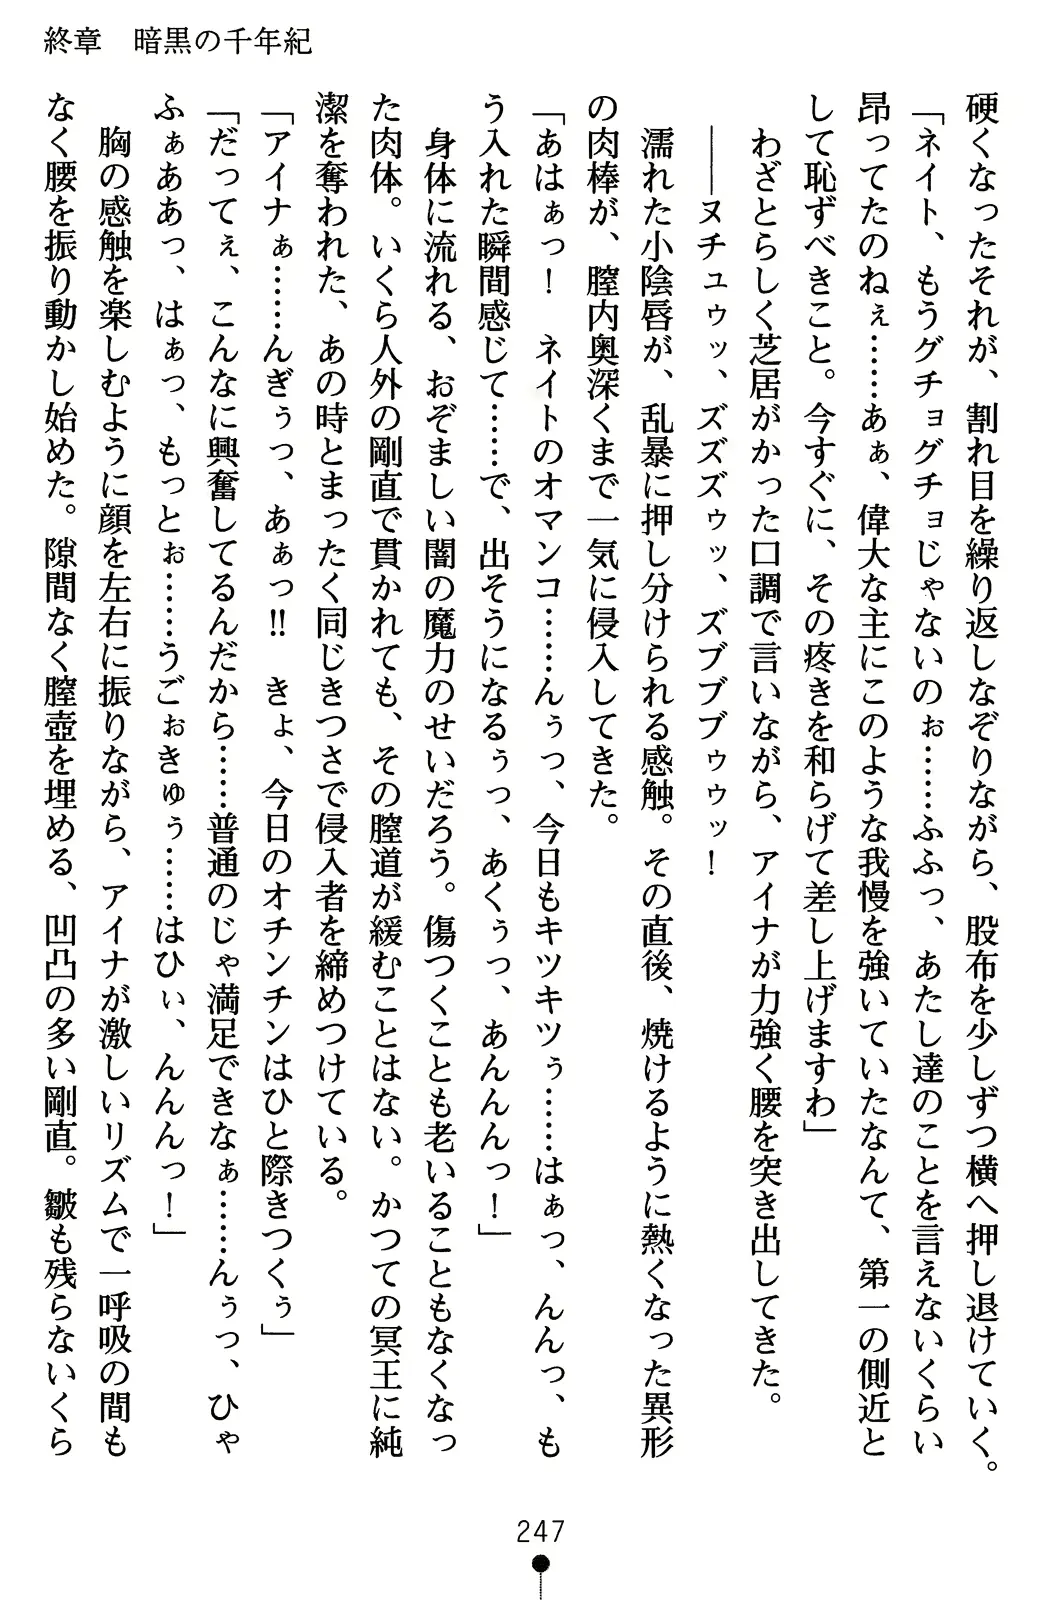 終章　暗黒の千年紀
硬くなったそれが、割れ目を繰り返しなぞりながら、股布を少しずつ横へ押し退けていく。
「ネイト、もうグチョグチョじゃないのぉ……ふふっ、あたし達のことを言えないくらい
昂ってたのねぇ……あぁ、偉大な主にこのような我慢を強いていたなんて、第一の側近と
して恥ずべきこと。今すぐに、その疼きを和らげて差し上げますわ」
　わざとらしく芝居がかった口調で言いながら、アイナが力強く腰を突き出してきた。
　――ヌチュゥッ、ズズズゥッ、ズブブブゥゥッ！
　濡れた小陰唇が、乱暴に押し分けられる感触。その直後、焼けるように熱くなった異形
の肉棒が、膣内奥深くまで一気に侵入してきた。
「あはぁっ！　ネイトのオマンコ……んぅっ、今日もキツキツぅ……はぁっ、んんっ、も
う入れた瞬間感じて……で、出そうになるぅっ、あくぅっ、あんんんっ！」
　身体に流れる、おぞましい闇の魔力のせいだろう。傷つくことも老いることもなくなっ
た肉体。いくら人外の剛直で貫かれても、その膣道が緩むことはない。かつての冥王に純
潔を奪われた、あの時とまったく同じきつさで侵入者を締めつけている。
「アイナぁ……んぎぅっ、あぁっ‼　きょ、今日のオチンチンはひと際きつくぅ」
「だってぇ、こんなに興奮してるんだから……普通のじゃ満足できなぁ……んぅっ、ひゃ
ふぁああっ、はぁっ、もっとぉ……うごぉきゅぅ……はひぃ、んんんっ！」
　胸の感触を楽しむように顔を左右に振りながら、アイナが激しいリズムで一呼吸の間も
なく腰を振り動かし始めた。隙間なく膣壺を埋める、凹凸の多い剛直。皺も残らないくら
247